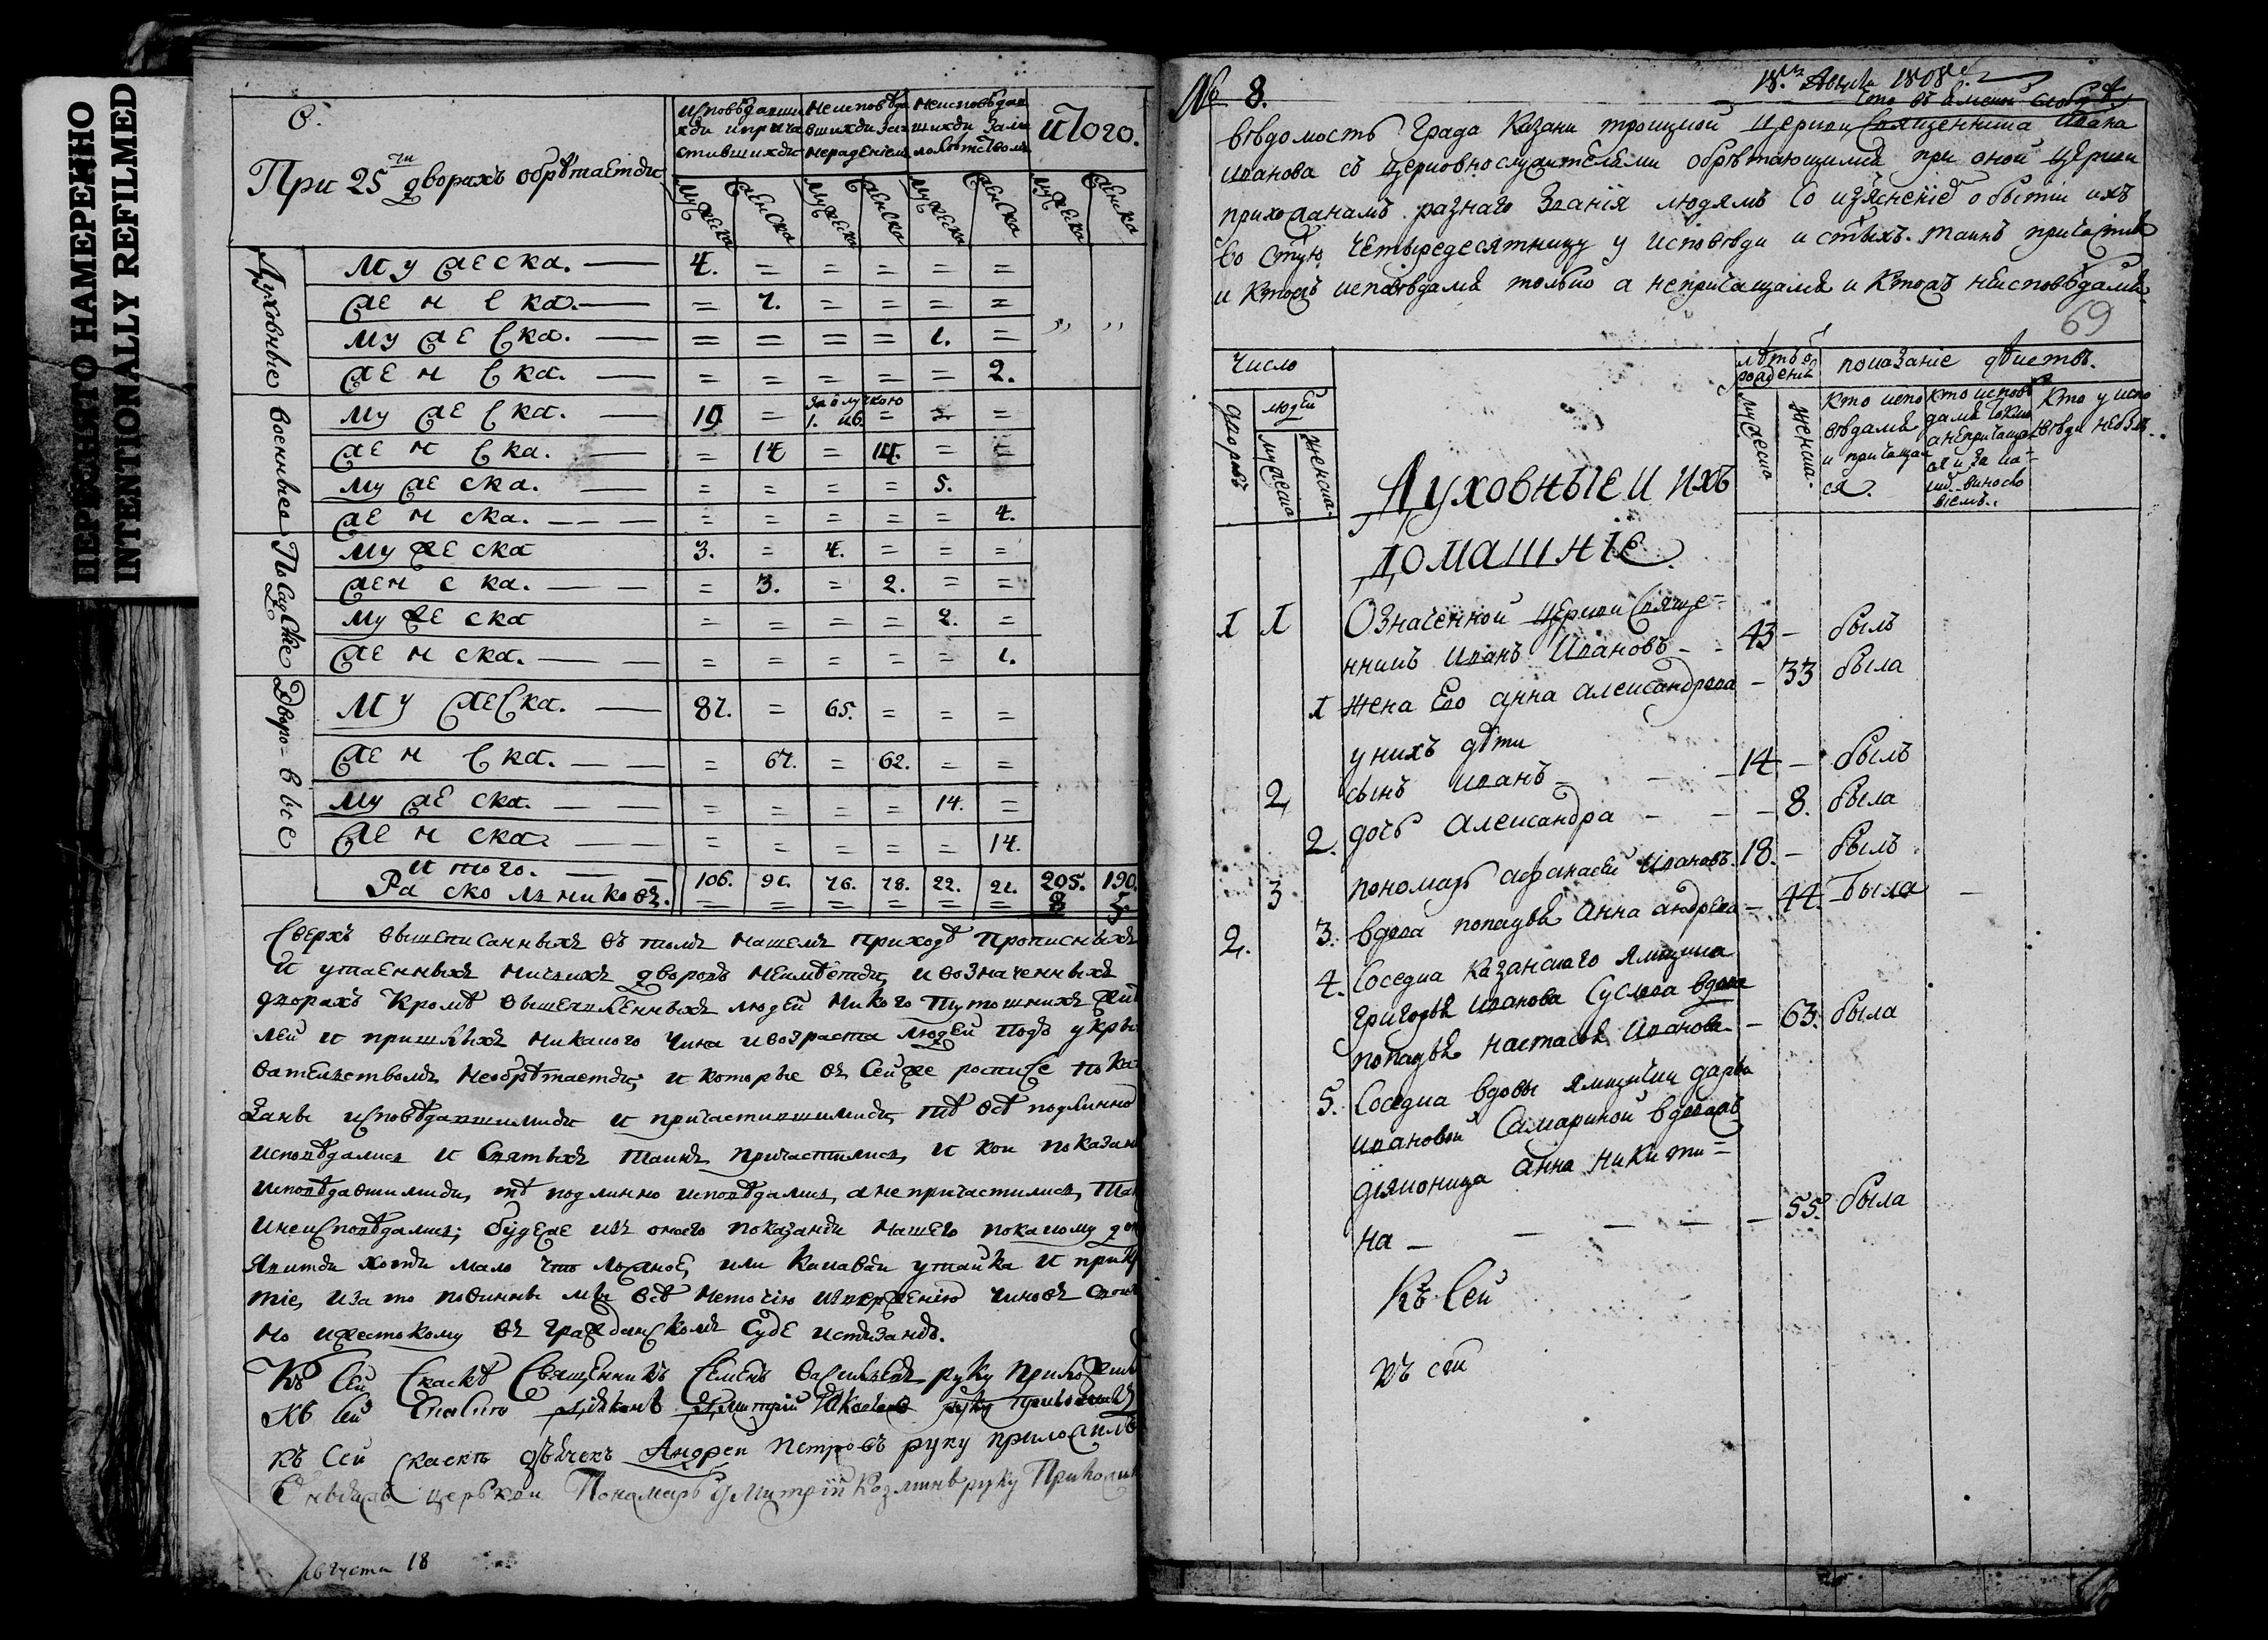 ПЕРЕСНЯТО НАМЕРЕННО
INTENTIONALLY REFILMED
При 25ти дворахъ обрѣтаетси
Исповѣдавши Неисповѣда Неисповѣдав
хси и прича вшихси за шихси за ма
стившихси нерадениемъ лолѣтствомъ
Итого.
Мужеска Женска Мужеска Женска Мужеска Женска Мужеска Женска
Духовные
Мужеска. 4. = = = = =
Женска. = 7. = = = =
Мужеска. = = = = 1. = " "
Женска. = = = = = 2.
Военныеа
Мужеска. = = =
Женска. = 14 = 14. = =
Мужеска. = = = = 5.
Женска. = = = = = 4.
Посадские
Мужеска 3. = 4. = = =
Женска. = 3. = 2. = =
Мужеска = = = = 2. =
Женска. = = = = = 1.
Дворо-вые
Мужеска. = 65. = = =
Женска. = 67. = 62. = =
Мужеска. = = = = 14. =
Женска. = = = = = 14.
Итого. 106. 91. 76. 78. 22. 21. 205. 190.
Расколниковъ. = = = = = = 5
Сверхъ вышеписанныхъ въ томъ нашемъ приходѣ прописныхъ
и утаенныхъ ничьихъ дворовъ неимѣетси, и возначенныхъ
дворахъ кромѣ людей никого тутошнихъ жи
леи и пришлыхъ никакого чина и возраста людеи подъ укры
вателством необрѣтаетси, и которые въ сеи же росписе пока
заны исповѣдавшимиси и причастившимиси, тѣ всѣ подлинно
исповѣдались и святыхъ таинъ причастились, и кои показан
исповѣдавшимиси, тѣ подлинно исповѣдались, а непричастились,
инеисповѣдались; будеже изъ оного показаниа нашего покакому
явитси хотя мало что ложное, или какаваи утаика и прикр
тие, иза то повинны мы всѣ неточию извержению чиновъ
но ижестокому въ гражданскомъ суде истязанию.
Къ сеи скаскѣ Священникъ Семенъ Васильевъ руку приложилъ
Къ сеи диаконъ Димитрии руку приложилъ
къ сеи скаскѣ дьячекъ Андреи Петровъ руку приложилъ
церькви Пономарь Дмитрии Козминъ руку Приложилъ
августа 18
№ 8.
18. Августа
вѣдомость града Казани троицкой церкви Священника Ивана
Иванова съ церковнослужителями обрѣтающимися при оной церкви
прихожанамъ разнаго звания людямъ со изъяснением о бытии ихъ
во стую четыредесятницу у исповѣди и стыхъ таинъ причастия
и ктожъ исповѣдался только а непричащался и ктожъ неисповѣдался
69
Число
дворовъ
людей
мужеска
женска.
лѣтъ от
рождения
мужеско
женска.
показание действъ.
Кто испо
вѣдался
и причащал
ся.
Кто исповѣ
дался токмо
а непричащал
ся и за ка-
ким виносло
виемъ.
Кто у испо
вѣди небылъ
Духовные и ихъ
домашние
1 1 Означенной церкви Свяще=
нникъ Иванъ Ивановъ - 43 - былъ
1 жена Его анна александрова - 33 была
у нихъ дѣти
2 сынъ иванъ - 14 - былъ
2. дочь Александра - 8. была
3 пономарь афанасей Ивановъ. 18. - былъ
2. 3. вдова попадья анна андреева - 44. была
4. Соседка казанского ямщика
григорья Иванова Суслова вдова
попадья настасья Иванова - 63. была
5. Соседка вдовы ямщички дарьи
ивановой Самариной вдовая
дияконица анна никити=
на - 55. была
Къ сей
Къ сей